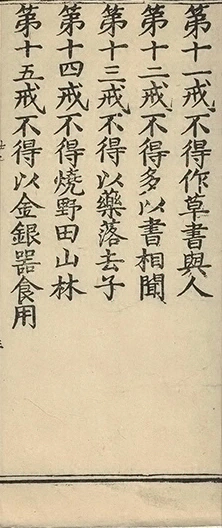 第十一戒不得作草書與人
第十二戒不得多以書相聞
第十三戒不得以藥落去子
第十四戒不得燒野田山林
第十五戒不得以金銀器食用